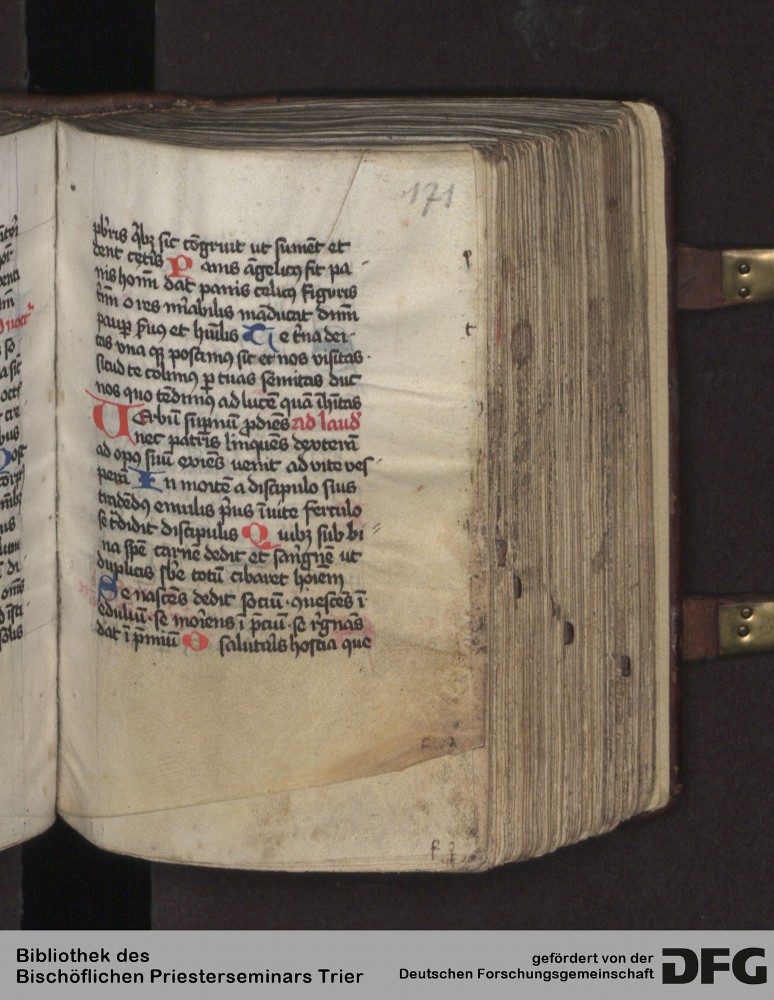 171
pbris qbz sic cōgruit ut sumēt et
dent cetis Panis āgelicꝯ fit pa
nis homī dat panis celicꝯ figuris
t̄mī o res mirabilis māducat dnm̄
paup sꝰuꝯ et hūilis Te t̄na dei
tas vna qꝫ poscimꝯ sic et nos visitas
sicud te colimꝯ p tuas semitas duc
nos quo tēdimꝯ ad lucē quā īhītas
Uerbū supnū pdiēs ad laud
nec patris linquēs dexterā
ad opꝯ suū exiēs uenit ad vite ves
perā In mortē a discipulo suis
tradēdꝯ emulis p̄us ī uite ferculo
se t̄didit discipulis Quibꝫ sub bi
na spē carnē dedit et sāguinē ut
duplicis sbe totū cibaret hoīem
Se nascēs dedit sociū quescēs ī
eduliū se moriens ī pciū se rgnās
dat ī pmiū O salutaris hostia que
Bibliothek des
Bischöflichen Priesterseminars Trier
gefördert von der
Deutschen Forschungsgemeinschaft DFG